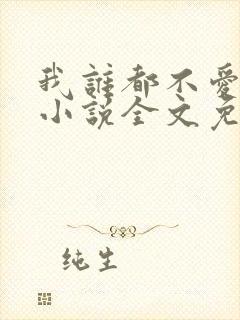 我誰都不愛
小說全文免
纯生